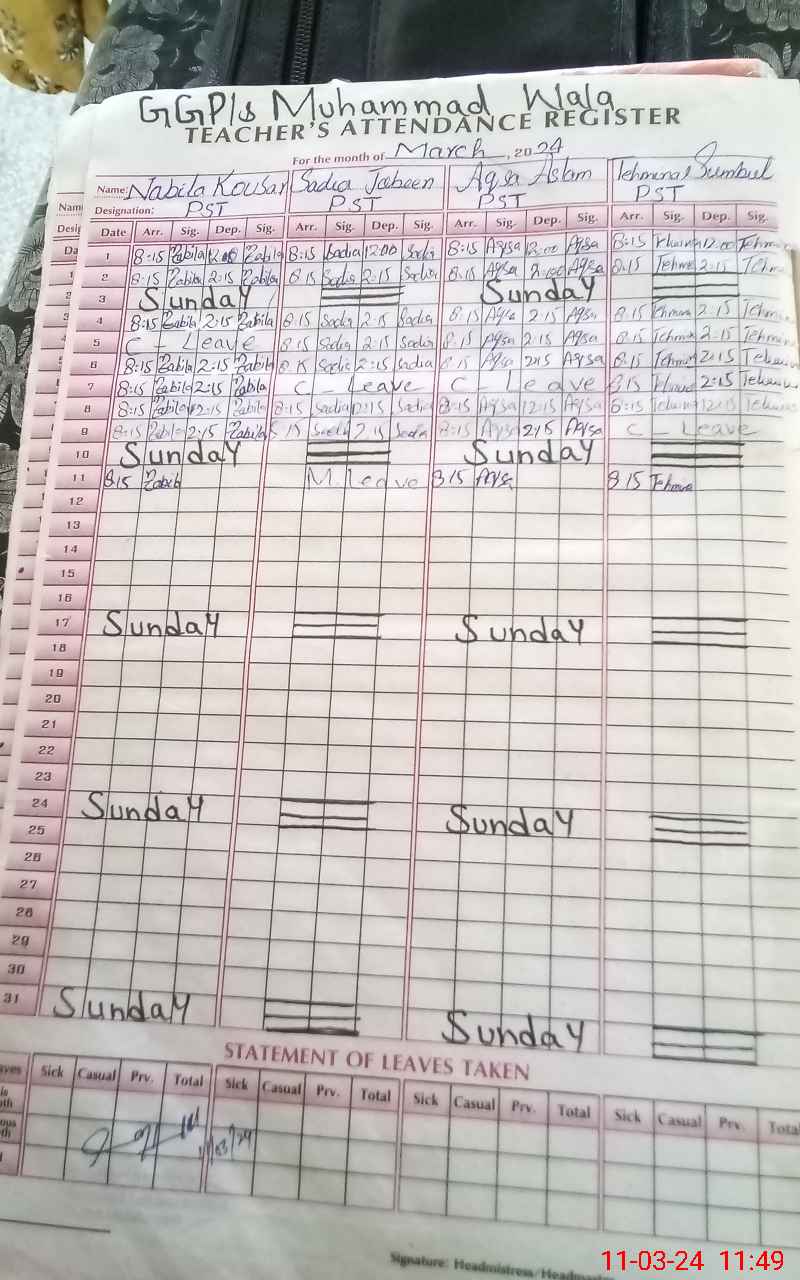 GGP/s Muhammad Wala
TEACHER'S ATTENDANCE REGISTER
For the month of March, 2024
Name: Nabila Kousar Sadia Jabeen Aqsa Aslam Tehmina Sumbul
Designation: PST PST PST PST
Date Arr. Sig. Dep. Sig. Arr. Sig. Dep. Sig. Arr. Sig. Dep. Sig. Arr. Sig. Dep. Sig.
1 8:15 Nabila 12:00 Nabila 8:15 Sadia 12:00 Sadia 8:15 Aqsa 12:00 Aqsa 8:15 12:00
2 8:15 Nabila 2:15 Nabila 8:15 Sadia 2:15 Sadia 8:15 Aqsa Aqsa 8:15 2:15
3 Sunday Sunday
4 8:15 Nabila 2:15 Nabila 8:15 Sadia 2:15 Sadia 8:15 Aqsa 2:15 Aqsa 8:15 2:15
5 C - Leave 8:15 Sadia 2:15 Sadia 8:15 Aqsa 2:15 Aqsa 8:15 2:15
6 8:15 Nabila 2:15 Nabila 8:15 Sadia 2:15 Sadia 8:15 Aqsa 2:15 Aqsa 8:15 2:15
7 8:15 Nabila 2:15 Nabila C - Leave C - Leave 8:15 2:15
8 8:15 Nabila 12:15 Nabila 8:15 Sadia 12:15 Sadia 8:15 Aqsa 12:15 Aqsa 8:15 12:15
9 8:15 Nabila 2:15 Nabila 8:15 Sadia 2:15 Sadia 8:15 Aqsa 2:15 Aqsa C - Leave
10 Sunday Sunday
11 8:15 Nabila M. Leave 8:15 Aqsa 8:15
12
13
14
15
16
17 Sunday Sunday
18
19
20
21
22
23
24 Sunday Sunday
25
26
27
28
29
30
31 Sunday Sunday
STATEMENT OF LEAVES TAKEN
Sick Casual Prv. Total Sick Casual Prv. Total Sick Casual Prv. Total Sick Casual Prv. Total
11/03/24
Signature: Headmistress/
11-03-24 11:49